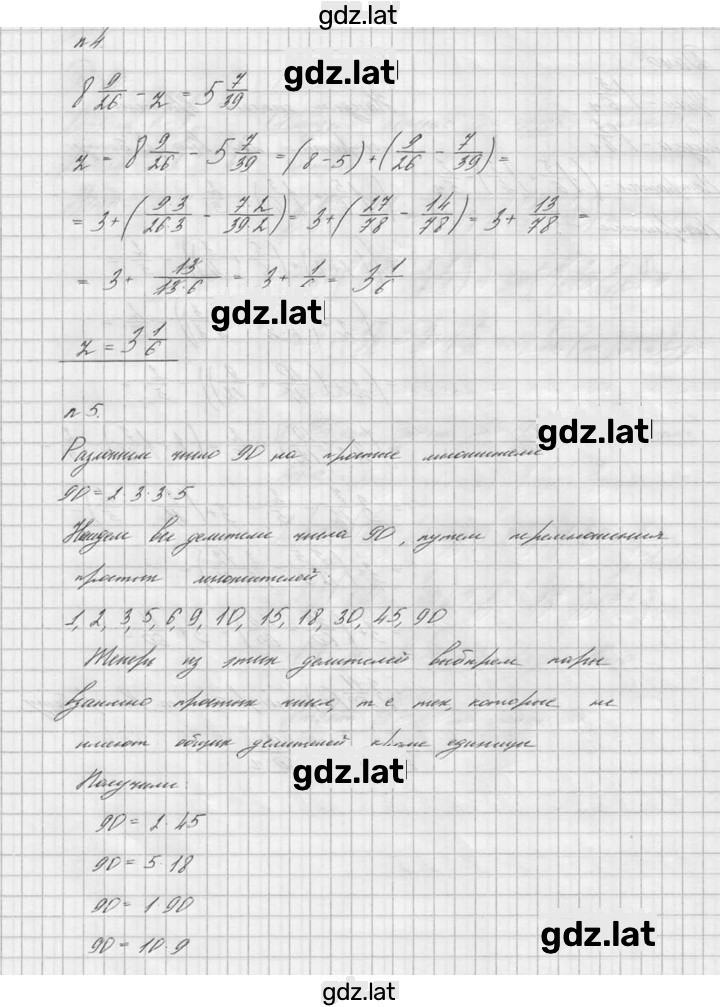 gdz.lat
n 4
gdz.lat
8 9/26 - z = 5 7/39
z = 8 9/26 - 5 7/39 = (8-5) + (9/26 - 7/39) =
= 3 + (9·3/26·3 - 7·2/39·2) = 3 + (27/78 - 14/78) = 3 + 13/78 =
= 3 + 13/13·6 = 3 + 1/6 = 3 1/6
gdz.lat
z = 3 1/6
n 5.
gdz.lat
Разложим число 90 на простые множители
90 = 2·3·3·5
Найдем все делители числа 90, путем перемножения
простых множителей:
1, 2, 3, 5, 6, 9, 10, 15, 18, 30, 45, 90
Теперь из этих делителей выберем пары
взаимно простых чисел, т е тех, которые не
имеют общих делителей кроме единицы
gdz.lat
Получили:
90 = 2·45
90 = 5·18
90 = 1·90
gdz.lat
90 = 10·9
gdz.lat